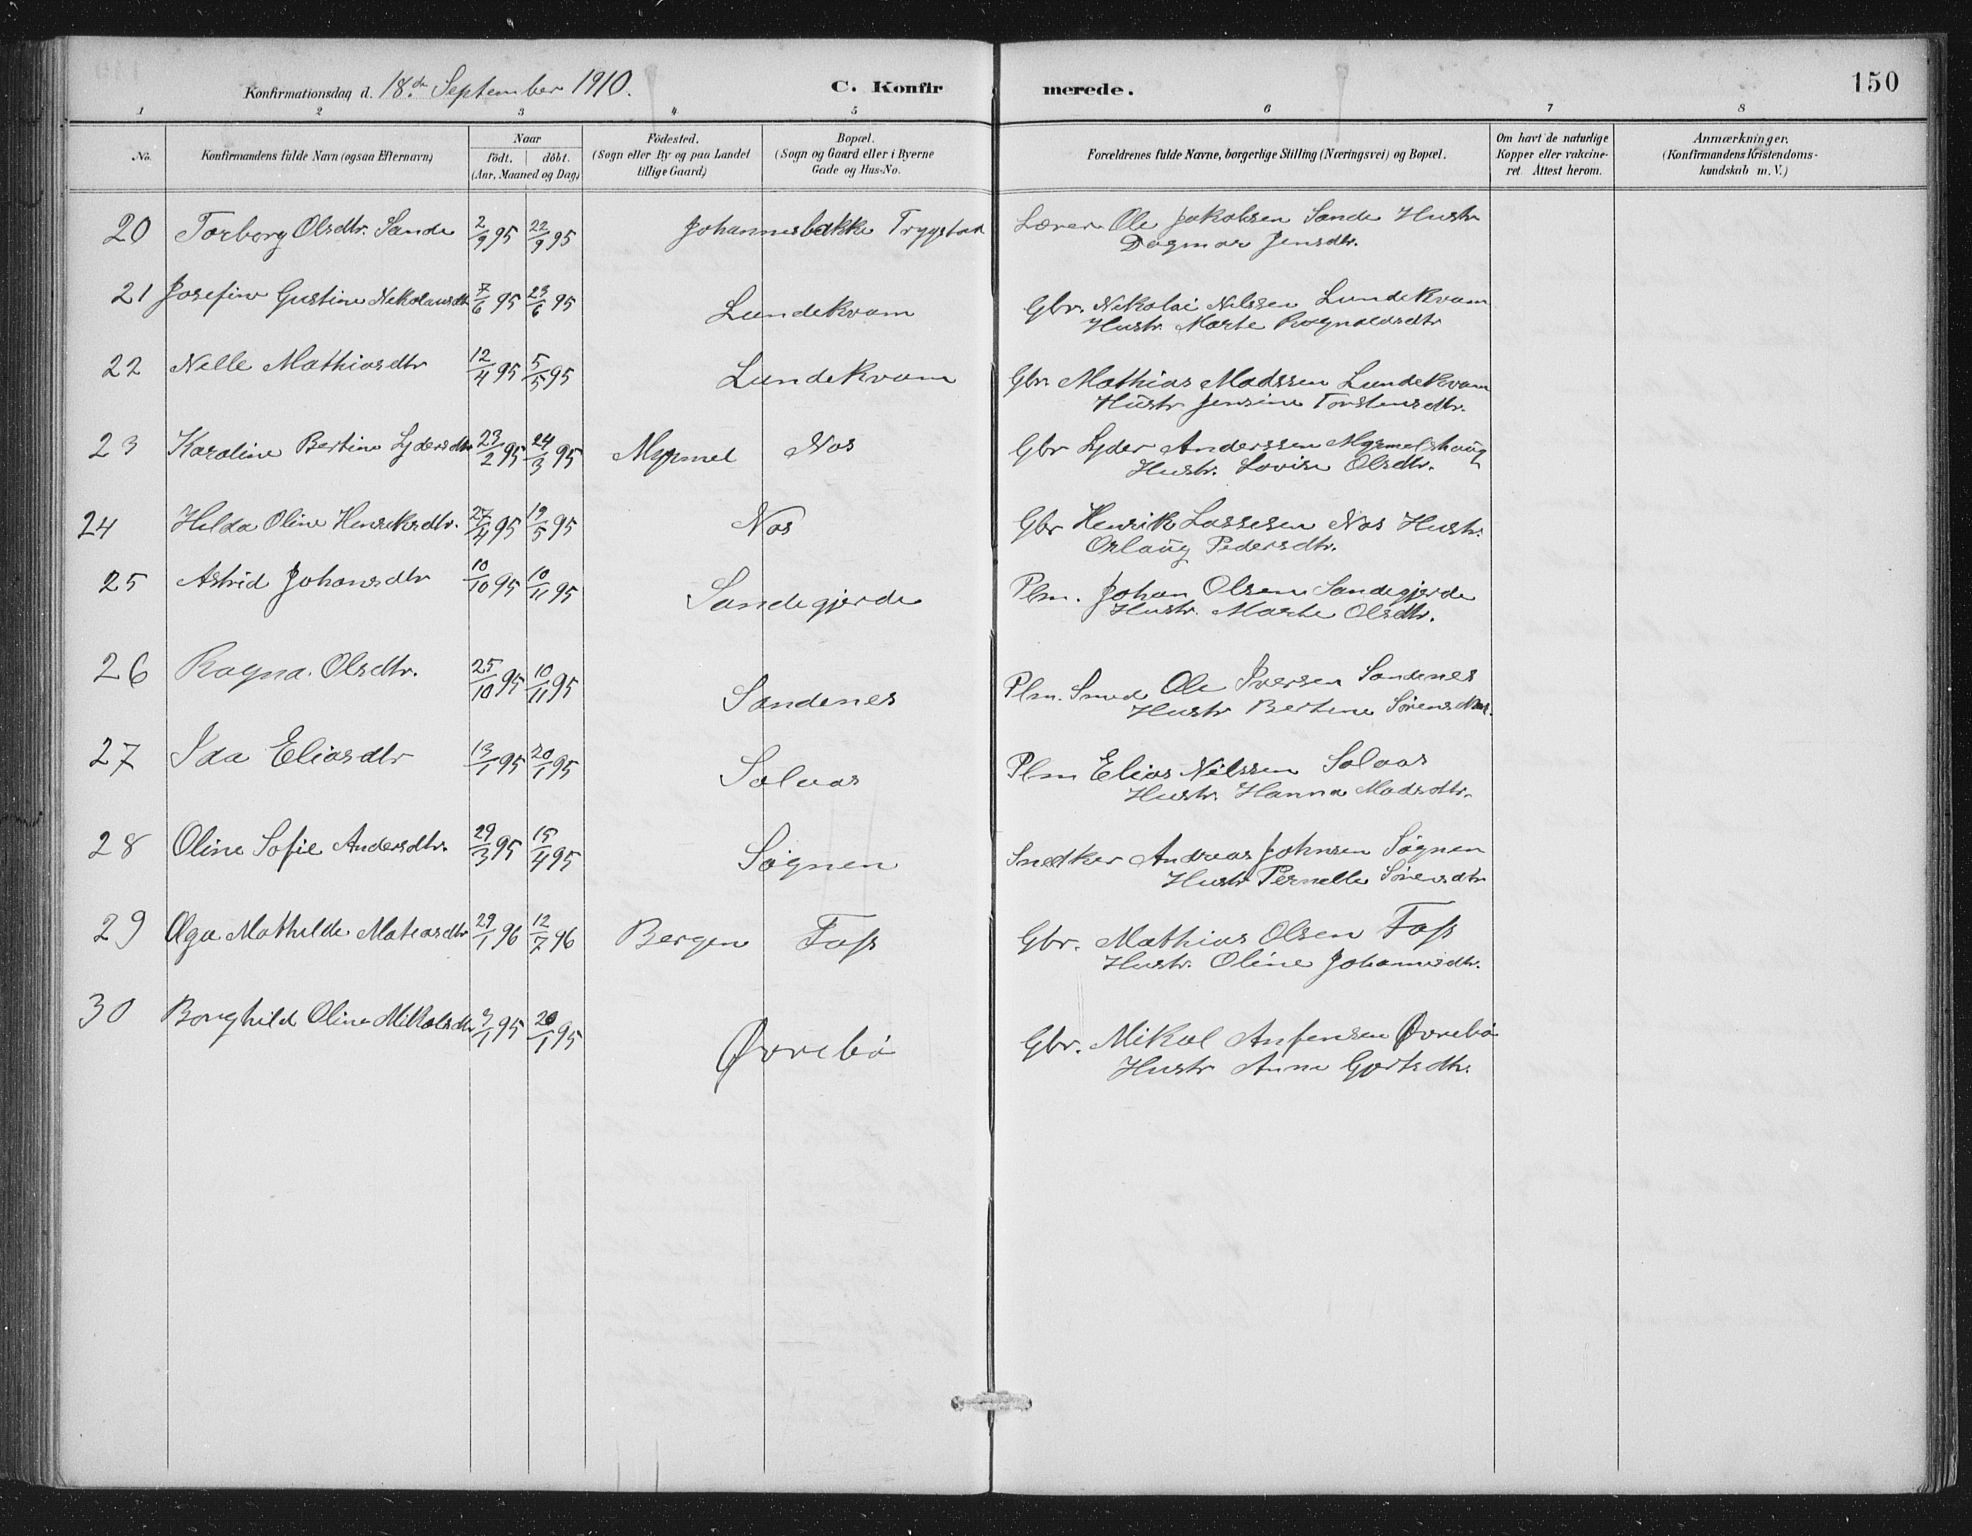 Konfirmationsdag d. 18.de September 1910. C. Konfirmerede. 150
1 2 3 4 5 6 7 8
No. Konfirmandens fulde Navn (ogsaa Efternavn) Naar født. døbt. (Aar, Maaned og Dag) Fødested. (Sogn eller By og paa Landet tillige Gaard) Bopæl. (Sogn og Gaard eller i Byerne Gade og Hus-No. Forældrenes fulde Navne, borgerlige Stilling (Næringsvei) og Bopæl. Om havt de naturlige Kopper eller vakcineret. Attest herom. Anmærkninger. (Konfirmandens Kristendomskundskab m. V.)
20 Torborg Olsdtr. Sande 2/9 95 22/9 95 Johannesbakke Trygstad Lærer Ole Jakobsen Sande Hustr
Dagmar Jensdtr.
21 Josefine Gustine Nikolausdtr 7/6 95 23/6 95 Lundekvam Gbr. Nikolai Nilssen Lundekvam
Hustr. Marte Ragnaldsdtr
22 Nelle Mathiasdtr 12/4 95 5/5 95 Lundekvam Gbr. Mathias Madssen Lundekvam
Hustr Jensine Torstensdtr.
23 Karoline Bertine Lydersdtr 23/2 95 24/3 95 Myrmel Nos Gbr Lyder Anderssen Myrmelshaug
Hustr. Lovise Olsdtr.
24 Hilda Oline Henriksdtr. 27/4 95 19/5 95 Nos Gbr Henrik Lassesen Nos Hustr.
Orlaug Pedersdtr.
25 Astrid Johansdtr 10/10 95 10/11 95 Sandegjerde Plm. Johan Olsen Sandegjerde
Hustr. Marte Olsdtr.
26 Ragna Olsdtr. 25/10 95 10/11 95 Sandenes Plm. Smed Ole Iversen Sandenes
Hustr Bertine Sørensdtr.
27 Ida Eliasdtr 13/1 95 20/1 95 Solaas Plm Elias Nilssen Solaas
Hustr. Hanna Madsdtr.
28 Oline Sofie Andersdtr. 29/3 95 15/4 95 Søgnen Snedker Andreas Johnsen Søgnen
Hustr Pernelle Sørensdtr
29 Olga Mathilde Matiasdtr 29/1 96 12/7 96 Bergen Foss Gbr. Mathias Olsen Foss
Hustr. Oline Johannesdtr.
30 Borghild Oline Mikalsdtr 3/1 95 20/1 95 Øvrebø Gbr. Mikal Anfensen Øvrebø
Hustr Anna Gjertsdtr.